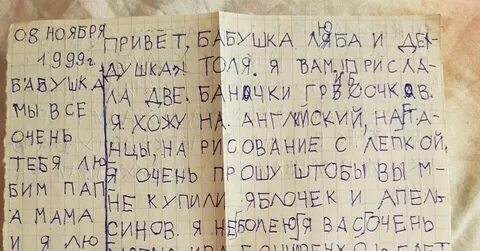 08 НОЯБРЯ
1999г.
БАБУШКА
МЫ ВСЕ
ОЧЕНЬ
ТЕБЯ ЛЮ
БИМ ПАП
А МАМА
И Я ЛЮ
ПРИВЕТ, БАБУШКА ЛЮБА И ДЕ-
ДУШКА ТОЛЯ. Я ВАМ ПРИСЛА-
ЛА ДВЕ БАНОЧКИ ГРИБОЧКОВ.
Я ХОЖУ НА АНГЛИЙСКИЙ, НА ТА-
НЦЫ, НА РИСОВАНИЕ С ЛЕПКОЙ.
Я ОЧЕНЬ ПРОШУ ШТОБЫ ВЫ М-
НЕ КУПИЛИ ЯБЛОЧЕК И АПЕЛЬ
СИНОВ. Я НЕ БОЛЕЮ Я ВАС ОЧЕНЬ